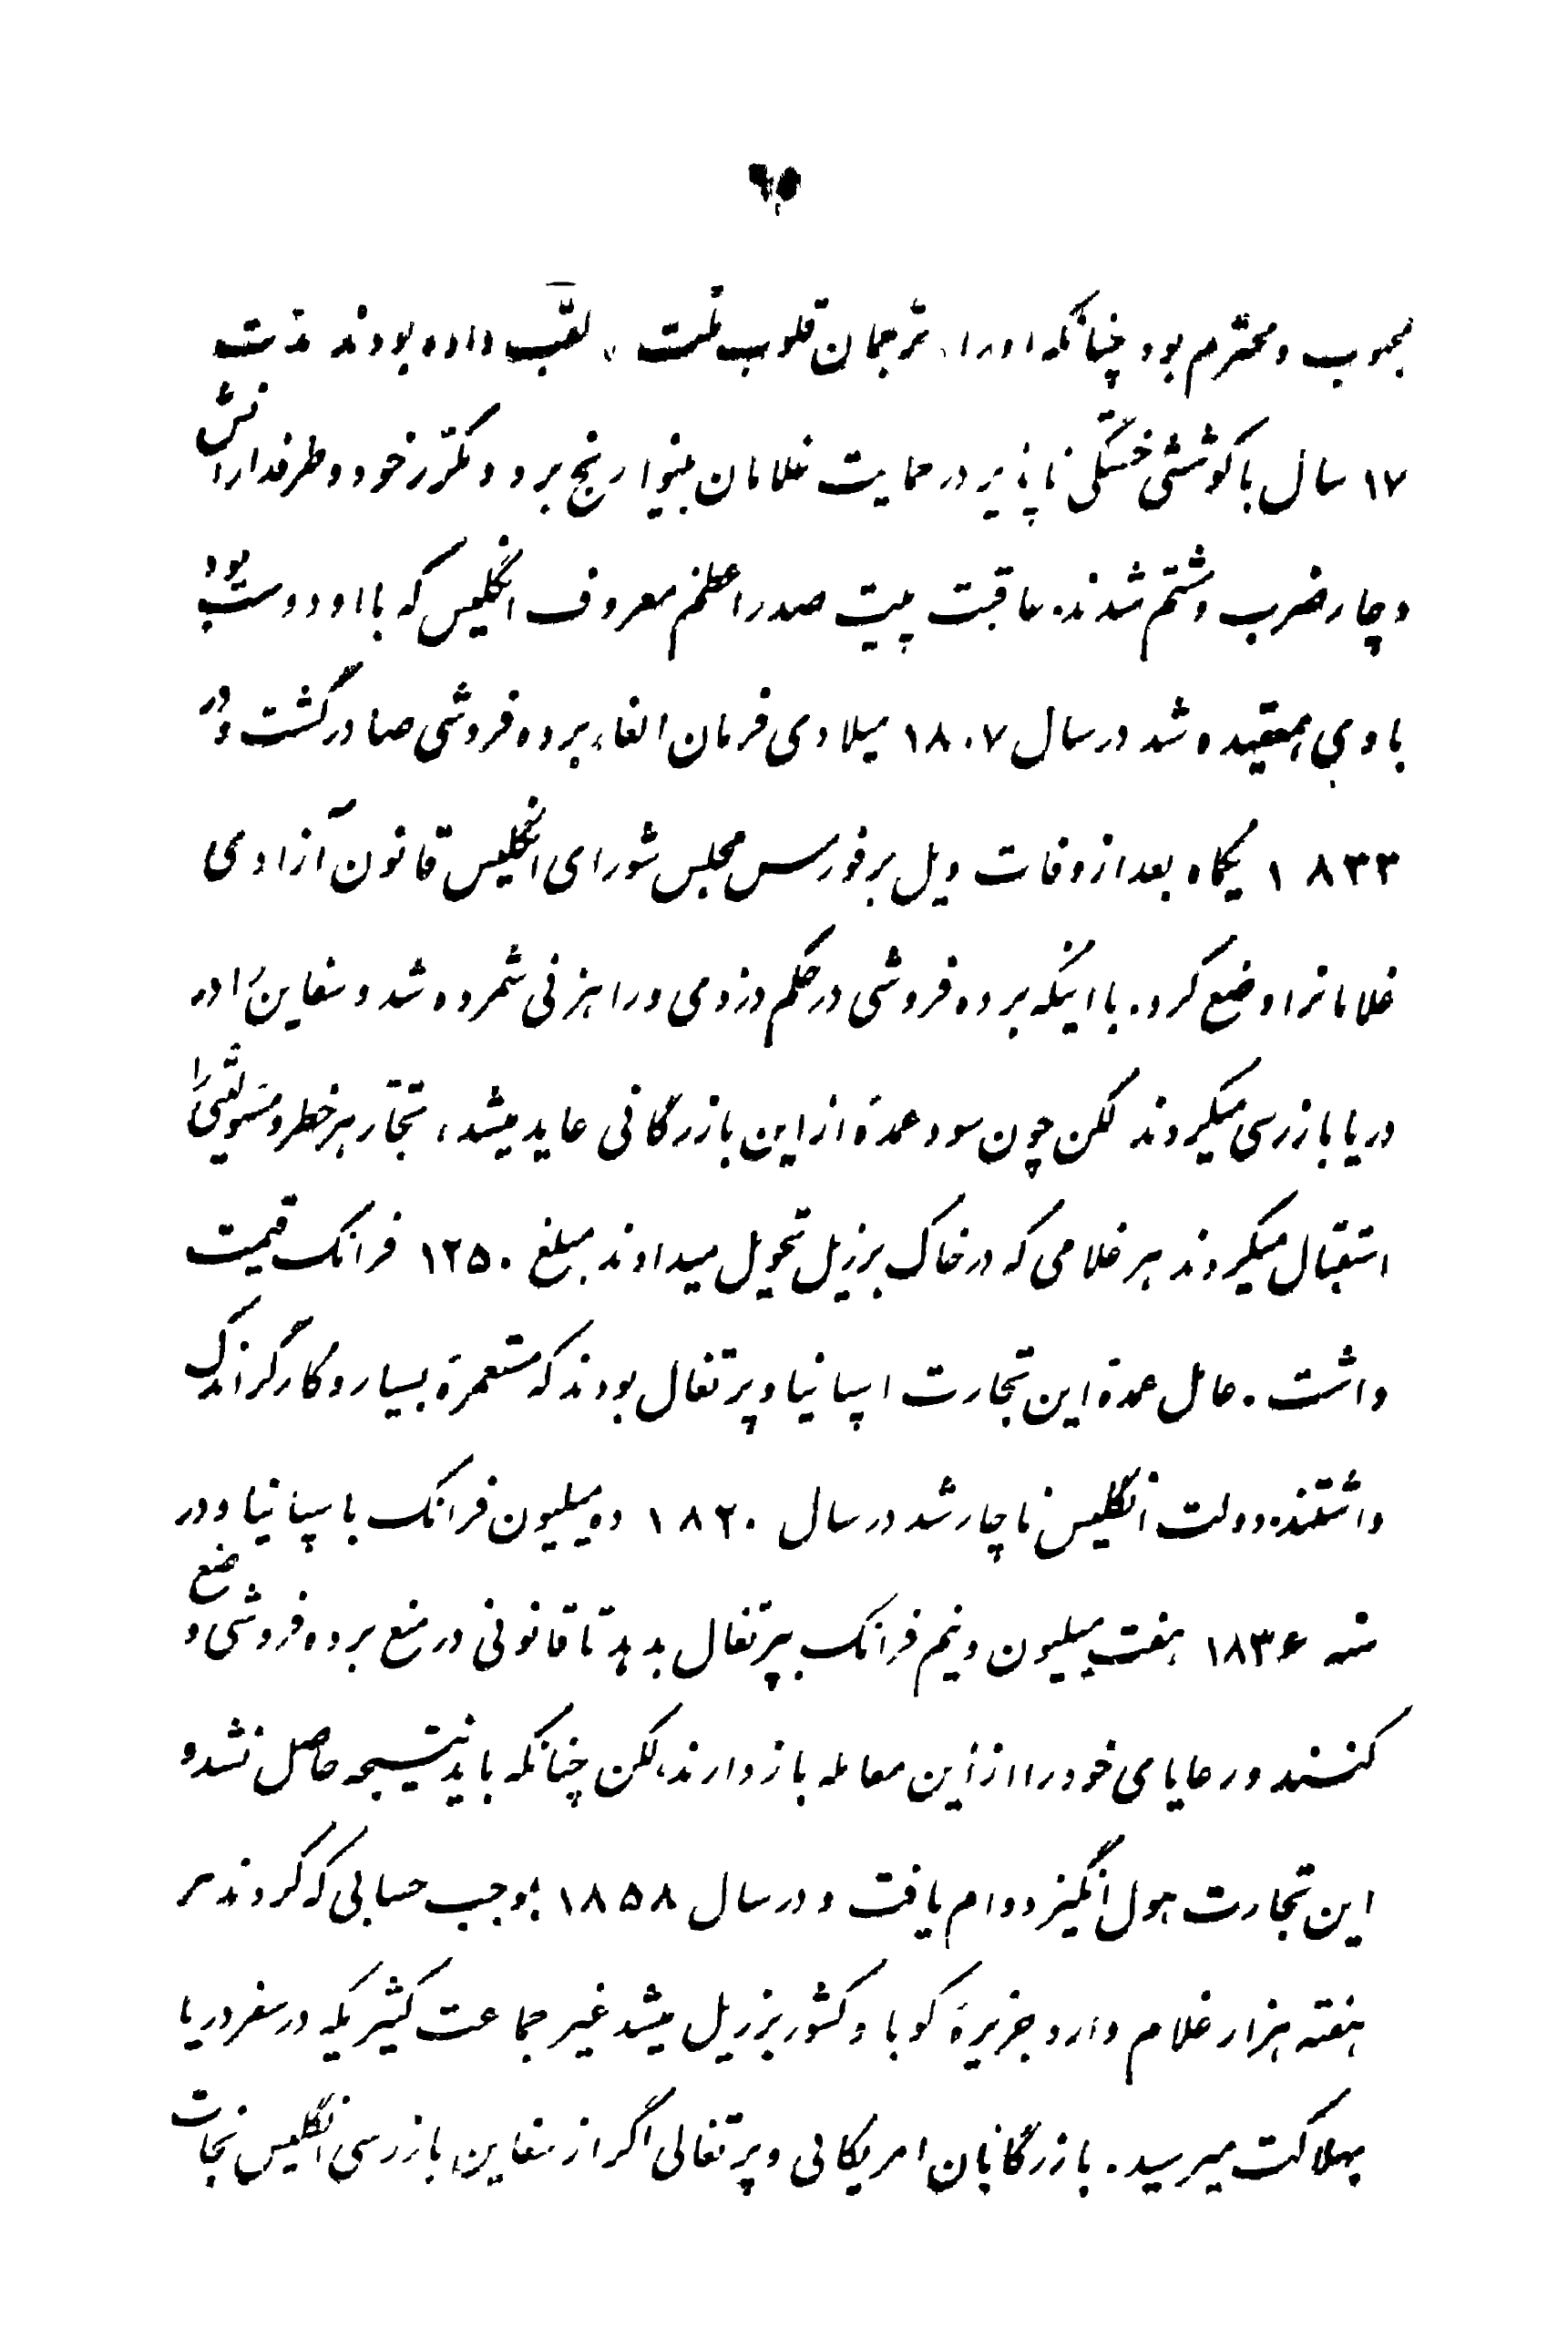 ۶۵
محبوب و محترم بود چنانکه او را «ترجمان قلوب ملّت» لقب داده بودند مدّت
۱۷ سال با کوششی خستگی ناپذیر در حمایت غلامان بینوا رنج برد و مکرّر خود و طرفدارانش
دچار ضرب و شتم شدند. عاقبت پیت صدراعظم معروف انگلیس که با او دوست بود
با وی همعقیده شد در سال ۱۸۰۷ میلادی فرمان الغاء برده فروشی صادر گشت و در
۱۸۳۳ یکماه بعد از وفات ویل برفورس مجلس شورای انگلیس قانون آزادی
غلامانرا وضع کرد. با اینکه برده فروشی در حکم دزدی و راهزنی شمرده شد و سفاین را در
دریا بازرسی میکردند لکن چون سود عمدهٔ از این بازرگانی عاید میشد، تجّار هر خطر و مسئولیّتی را
استقبال میکردند هر غلامی که در خاک برزیل تحویل میدادند مبلغ ۱۲۵۰ فرانک قیمت
داشت. عامل عمدهٔ این تجارت اسپانیا و پرتغال بودند که مستعمرهٔ بسیار و کارگر اندک
داشتند. دولت انگلیس ناچار شد در سال ۱۸۲۰ ده میلیون فرانک باسپانیا و در
سنه ۱۸۳۶ هفت میلیون و نیم فرانک بپرتغال بدهد تا قانونی در منع برده فروشی وضع
کنند و رعایای خود را از این معامله باز دارند، لکن چنانکه باید نتیجه حاصل نشد و
این تجارت هول انگیز دوام یافت و در سال ۱۸۵۸ بموجب حسابی که کردند هر
هفته هزار غلام وارد جزیرهٔ کوبا و کشور برزیل میشد غیر جماعت کثیریکه در سفر دریا
بهلاکت میرسید. بازرگانان امریکائی و پرتغالی اگر از سفاین بازرسی انگلیس نجات